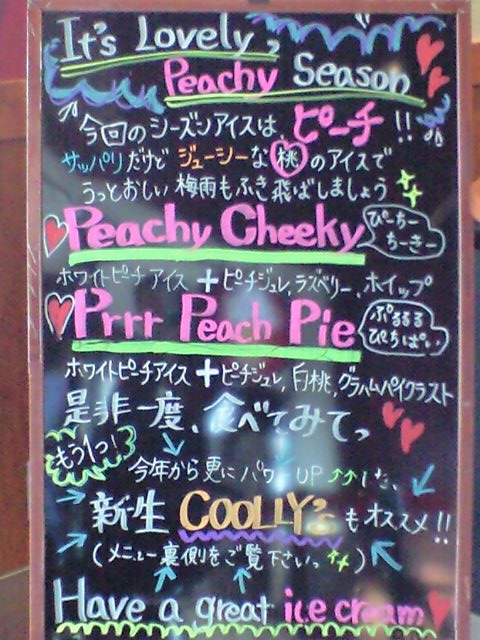 It's Lovely,
Peachy Season
今回のシーズンアイスは、ピーチ!!
サッパリだけどジューシーな桃のアイスで
うっとおしい梅雨もふき飛ばしましょう
Peachy Cheeky
ぴーちー
ちーきー
ホワイトピーチアイス+ピーチジュレ,ラズベリー、ホイップ
Prrr Peach Pie
ぷるるる
ぴちぱい
ホワイトピーチアイス+ピーチジュレ,白桃,グラハムパイクラスト
是非一度、食べてみてっ
もう1つ!
今年から更にパワーUP↑↑した、
新生COOLLY'sもオススメ!!
(メニュー裏側をご覧下さいっ)
Have a great ice cream